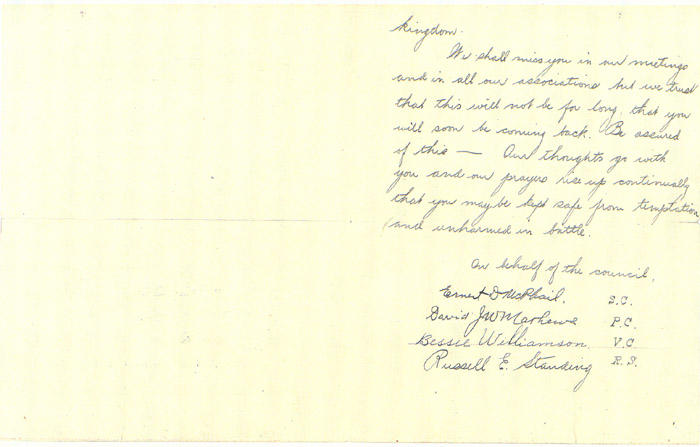 kingdom.
We shall miss you in our meetings
and in all our associations but we trust
that this will not be for long, that you
will soon be coming back. Be assured
of this — Our thoughts go with
you and our prayers rise up continually
that you may be kept safe from temptation
and unharmed in battle.
On behalf of the council,
Ernest D McPhail. S.C.
David J W Mathews P.C.
Bessie Williamson V.C.
Russell E. Standing R.S.